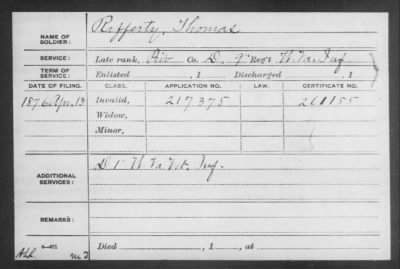 NAME OF SOLDIER: Rifferty, Thomas
SERVICE: Late rank, Priv Co. D, 9" Reg't W. Va. Inf.
TERM OF SERVICE: Enlisted , 1 Discharged , 1
DATE OF FILING. CLASS. APPLICATION NO. LAW. CERTIFICATE NO.
1876 Apr. 13 Invalid, 217375 261155
Widow,
Minor,
ADDITIONAL SERVICES: D 1" W Va Vet. Inf.
REMARKS:
Died , 1 , at